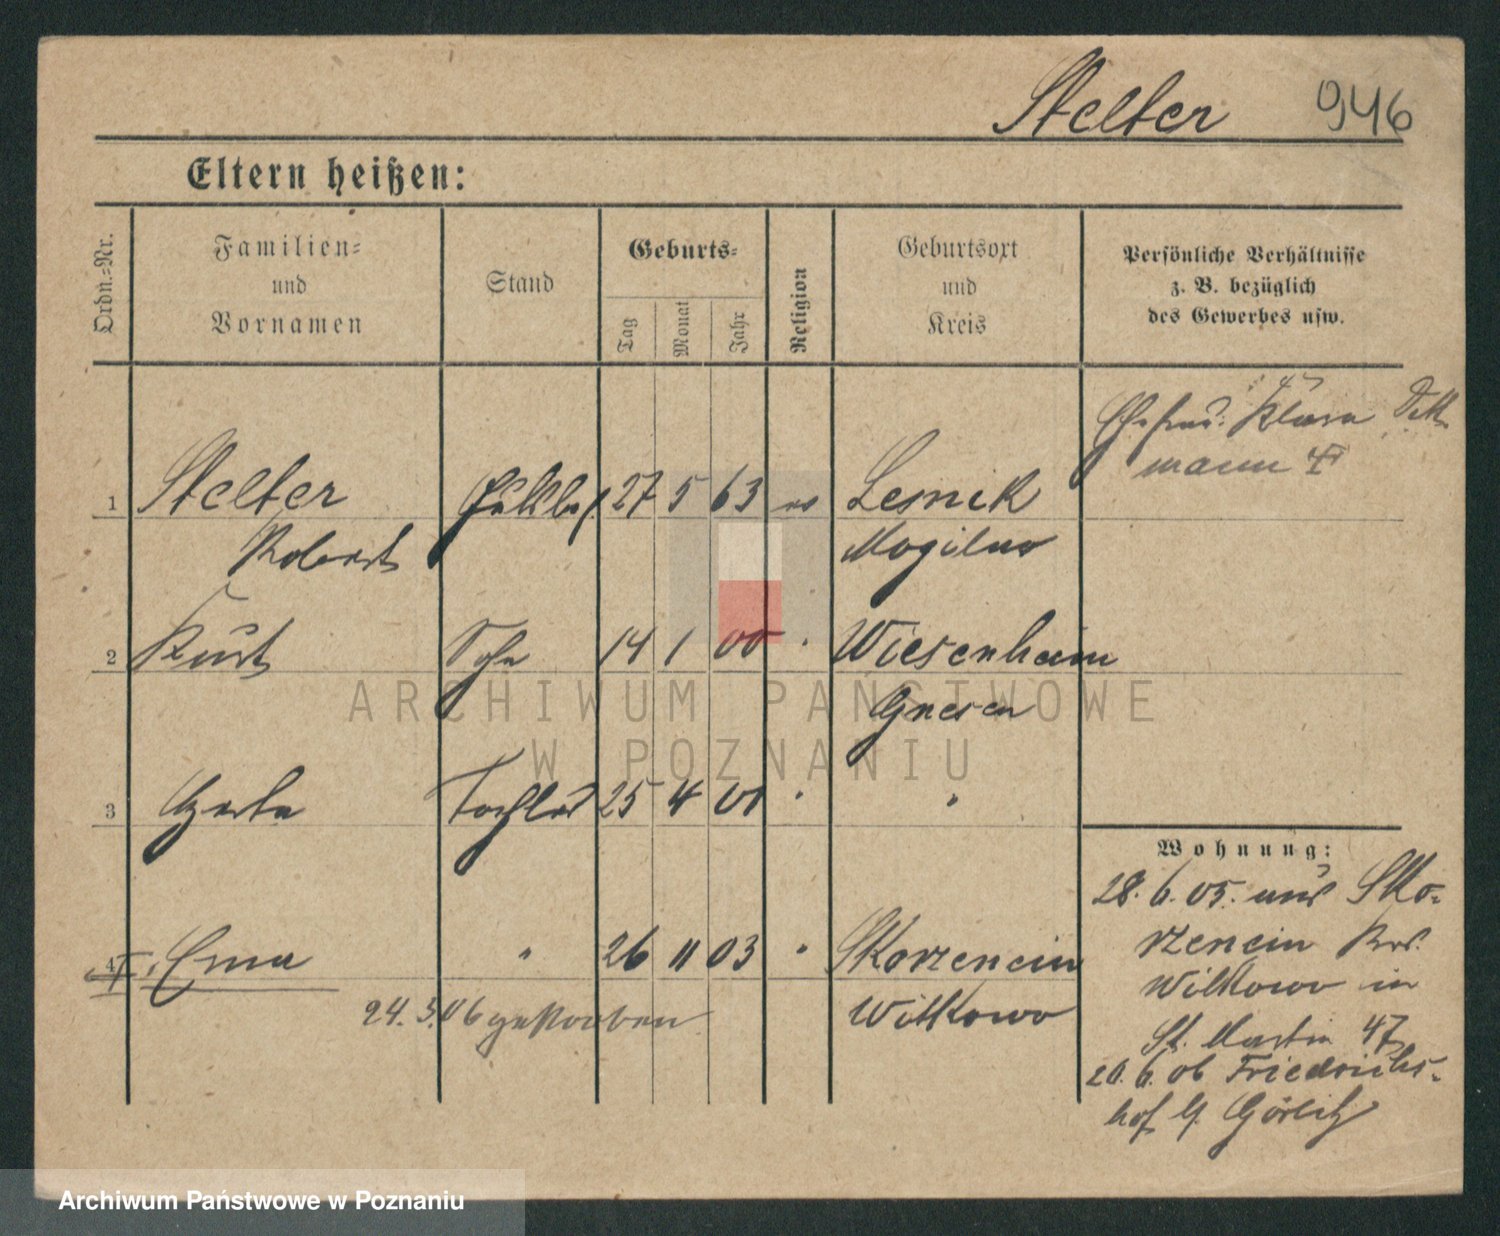 Stelter 946
Eltern heißen:
Ordn.=Nr.
Familien=
und
Vornamen
Stand
Geburts=
Tag
Monat
Jahr
Religion
Geburtsort
und
Kreis
Persönliche Verhältnisse
z. B. bezüglich
des Gewerbes usw.
Ehefrau: Klara
mann
1 Stelter 27 5 63 ev Lesnik
Robert Mogilno
2 Kurt Sohn 14 1 00 " Wiesenheim
Gnesen
3 Gerta Tochter 25 4 01 " "
Wohnung:
28. 6. 05. aus Sko=
rzencin Krs.
Witkowo in
St. Martin 47
4 Erna " 26 11 03 " Skorzencin
24. 3. 06 gestorben Witkowo
20. 6. 06 Friedrichs=
hof Görlitz
ARCHIWUM PAŃSTWOWE
W POZNANIU
Archiwum Państwowe w Poznaniu